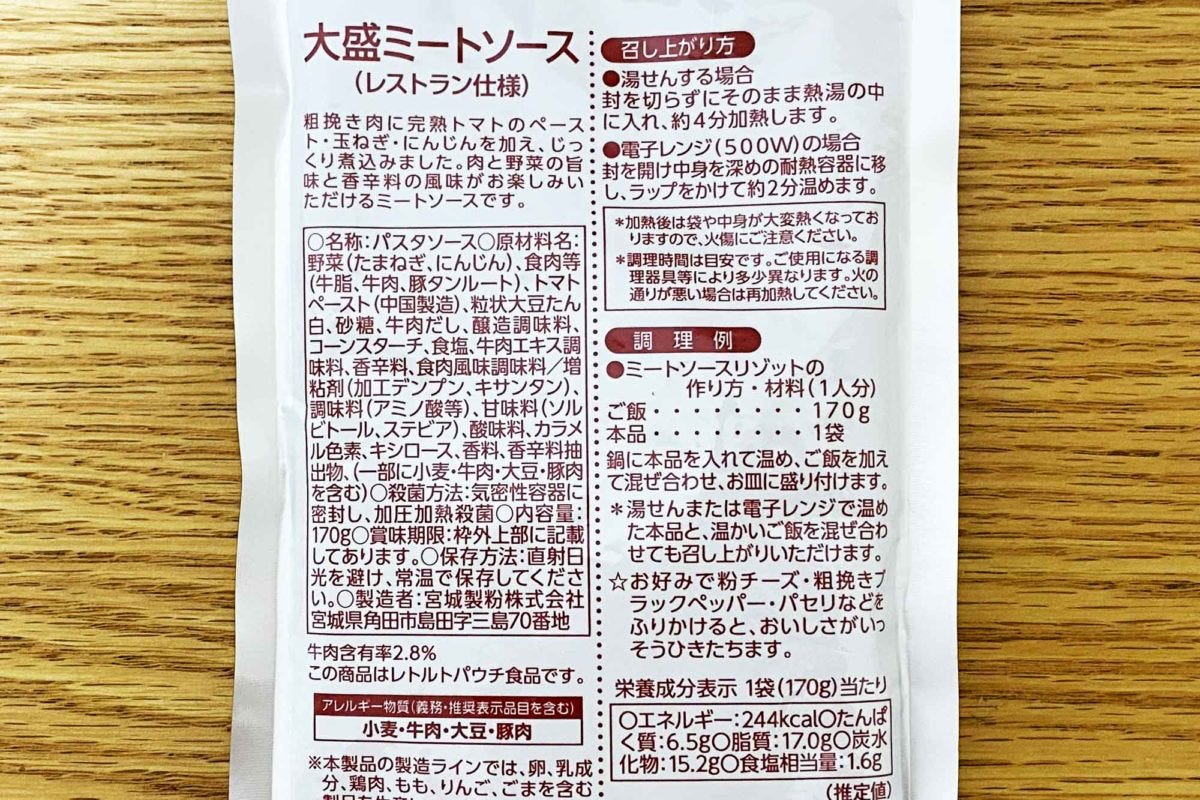 大盛ミートソース
(レストラン仕様)
粗挽き肉に完熟トマトのペース
ト・玉ねぎ・にんじんを加え、じっ
くり煮込みました。肉と野菜の旨
味と香辛料の風味がお楽しみい
ただけるミートソースです。
○名称:パスタソース○原材料名:
野菜(たまねぎ、にんじん)、食肉等
(牛脂、牛肉、豚タンルート)、トマト
ペースト(中国製造)、粒状大豆たん
白、砂糖、牛肉だし、醸造調味料、
コーンスターチ、食塩、牛肉エキス調
味料、香辛料、食肉風味調味料/増
粘剤(加工デンプン、キサンタン)、
調味料(アミノ酸等)、甘味料(ソル
ビトール、ステビア)、酸味料、カラメ
ル色素、キシロース、香料、香辛料抽
出物、(一部に小麦・牛肉・大豆・豚肉
を含む)○殺菌方法:気密性容器に
密封し、加圧加熱殺菌○内容量:
170g○賞味期限:枠外上部に記載
してあります。○保存方法:直射日
光を避け、常温で保存してくださ
い。○製造者:宮城製粉株式会社
宮城県角田市島田字三島70番地
牛肉含有率2.8%
この商品はレトルトパウチ食品です。
アレルギー物質(義務・推奨表示品目を含む)
小麦・牛肉・大豆・豚肉
※本製品の製造ラインでは、卵、乳成
分、鶏肉、もも、りんご、ごまを含む
召し上がり方
●湯せんする場合
封を切らずにそのまま熱湯の中
に入れ、約4分加熱します。
●電子レンジ(500W)の場合
封を開け中身を深めの耐熱容器に移
し、ラップをかけて約2分温めます。
*加熱後は袋や中身が大変熱くなってお
りますので、火傷にご注意ください。
*調理時間は目安です。ご使用になる調
理器具等により多少異なります。火の
通りが悪い場合は再加熱してください。
調理例
●ミートソースリゾットの
作り方・材料(1人分)
ご飯・・・・・・・・170g
本品・・・・・・・・1袋
鍋に本品を入れて温め、ご飯を加え
て混ぜ合わせ、お皿に盛り付けます。
*湯せんまたは電子レンジで温め
た本品と、温かいご飯を混ぜ合わ
せても召し上がりいただけます。
☆お好みで粉チーズ・粗挽きブ
ラックペッパー・パセリなどを
ふりかけると、おいしさがいっ
そうひきたちます。
栄養成分表示 1袋(170g)当たり
○エネルギー:244kcal○たんぱ
く質:6.5g○脂質:17.0g○炭水
化物:15.2g○食塩相当量:1.6g
(推定値)